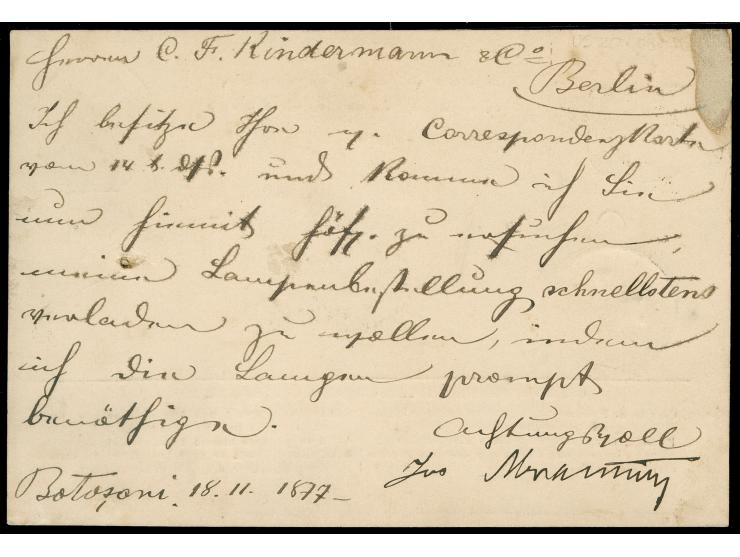 Herren C. F. Kindermann & Co
Berlin
Ich besitze Ihre g. Correspondenzkarte
vom 14. d. Mts. und komme ich Sie
nun hiemit höfl. zu ersuchen,
meine Lampenbestellung schnellstens
verladen zu wollen, indem
ich die Lampen prompt
benöthige.
Achtungsvoll
Botoşani 18.11. 1877